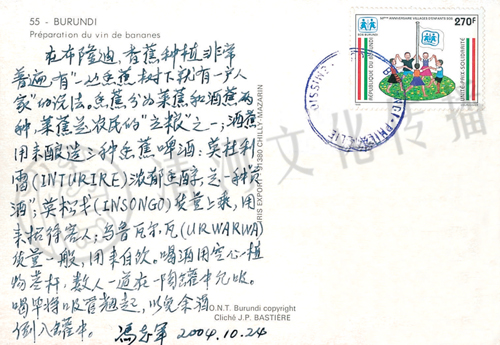 55 - BURUNDI
Préparation du vin de bananes
在布隆迪,香蕉种植非常
普遍,有"一丛香蕉树下就有一户人
家"的说法。香蕉分为菜蕉和酒蕉两
种,菜蕉是农民的"主粮"之一;酒蕉
用来酿造三种香蕉啤酒:莫杜利
雷(INTURIRE)浓郁香醇,是一种"烈
酒";莫松戈(INSONGO)质量上乘,用
来招待客人;乌鲁瓦尔瓦(URWARWA)
质量一般,用来自饮。喝酒用空心植
物茎杆,数人一道在一陶罐中允吸。
喝毕将吸管翘起,以免余酒
倒入罐中。
冯志军 2004.10.24
RIS EXPOR 91380 CHILLY-MAZARIN
O.N.T. Burundi copyright
Cliché J.P. BASTIÈRE
ANNIVERSAIRE VILLAGES D'ENFANTS SOS
270F
REPUBLIQUE DU BURUNDI
UNITE-PAIX-SOLIDARITE
文化传播